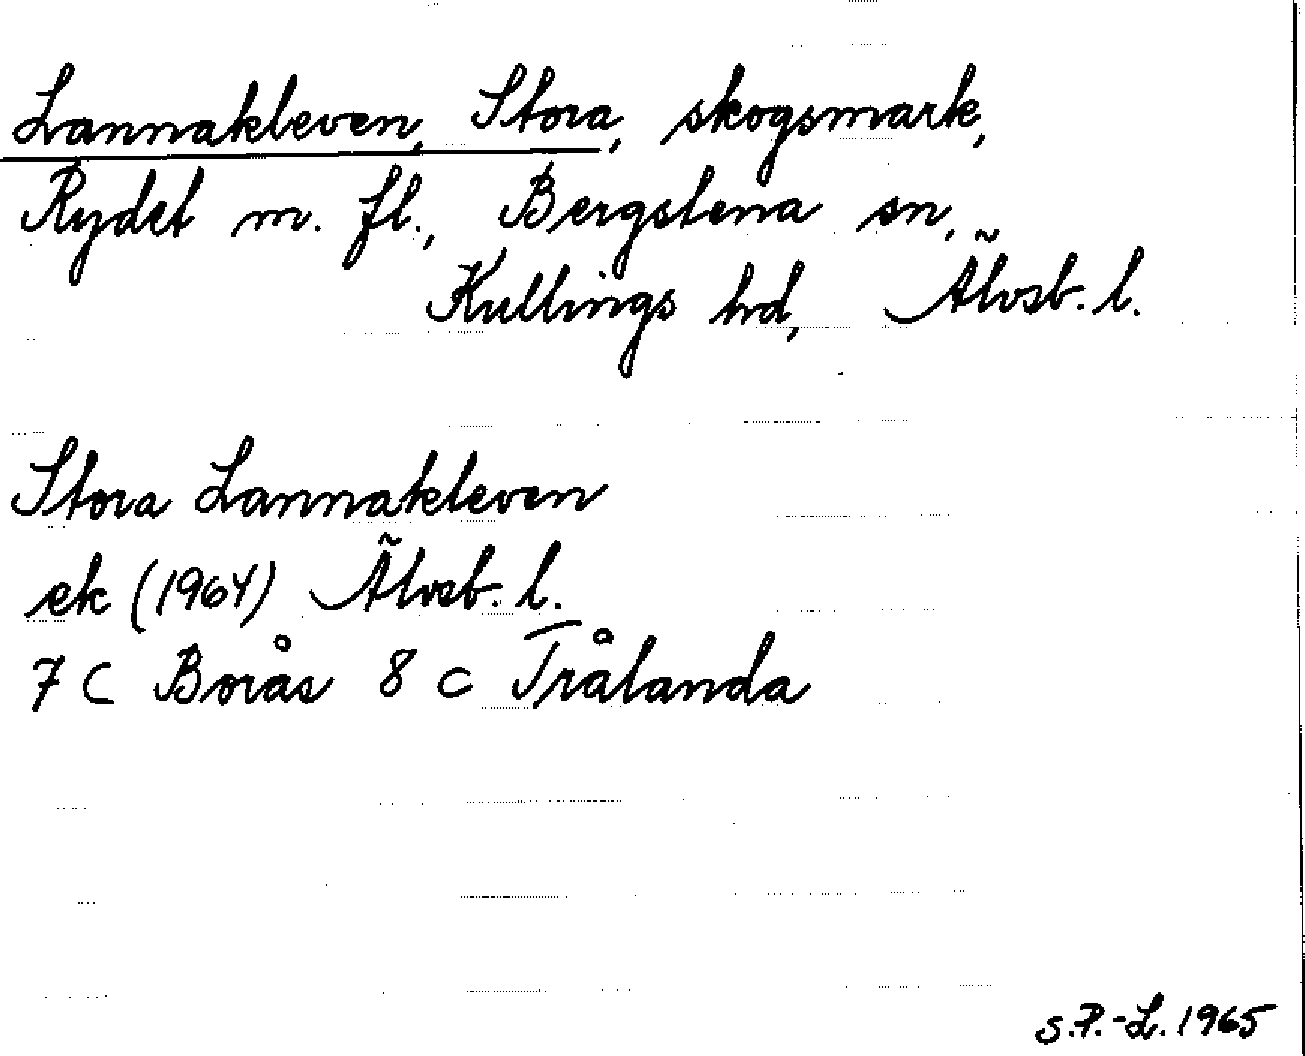 Lannakleven, Stora, skogsmark,
Rydet m. fl., Bergstena sn,
Kullings hd, Älvsb. l.
Stora Lannakleven
ek (1964) Älvsb. l.
7 C Borås 8 c Trålanda
S.P.-L. 1965